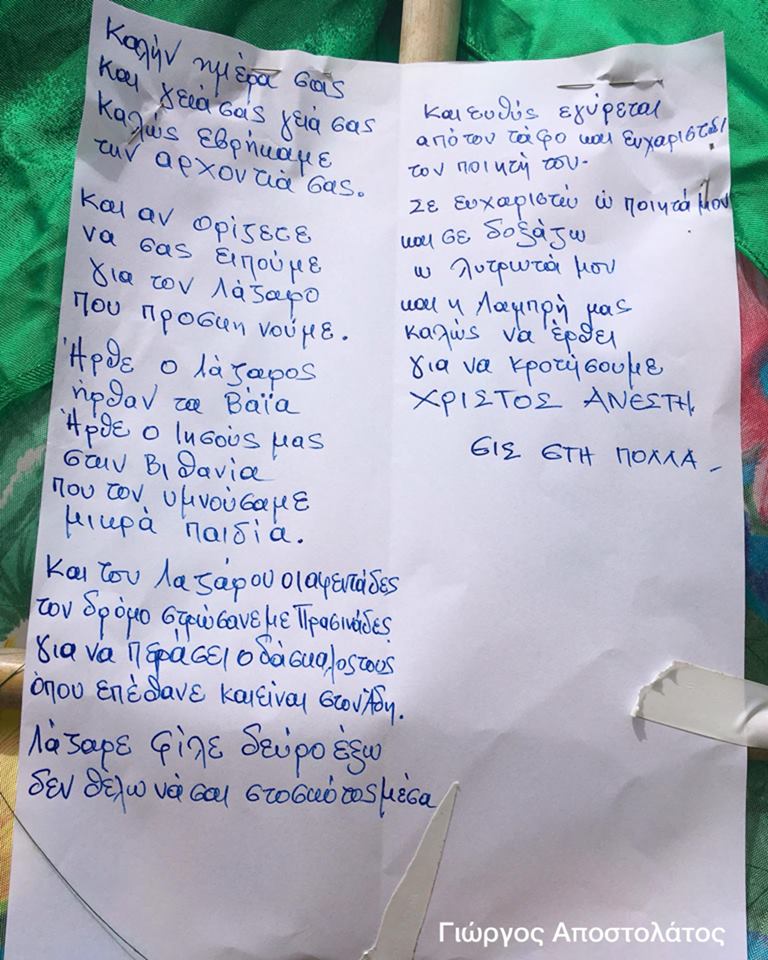 Καλήν ημέρα σας
Και γειά σάς γειά σας
Καλώς εβρήκαμε
την αρχοντιά σας.
Και αν ορίζετε
να σας ειπούμε
για τον Λάζαρο
που προσκηνούμε.
Ήρθε ο Λάζαρος
ήρθαν τα Βάϊα
Ήρθε ο Ιησούς μας
στην Βιθανία
που τον υμνούσαμε
μικρά παιδία.
Και του Λαζάρου οι αφεντάδες
τον δρόμο στρώσανε με Πρασινάδες
για να περάσει ο δάσκαλος τους
όπου επέθανε και είναι στον Άδη.
Λάζαρε φίλε δεύρο έξω
δεν θέλω νάσαι στο σκότος μέσα
Και ευθύς εγύρεται
από τον τάφο και ευχαριστεί
τον ποιητή του.
Σε ευχαριστώ ω ποιητά μου
και σε δοξάζω
ω λυτρωτά μου
και η Λαμπρή μας
καλώς να έρθει
για να κροτήσουμε
ΧΡΙΣΤΟΣ ΑΝΕΣΤΗ.
ΕΙΣ ΕΤΗ ΠΟΛΛΑ
Γιώργος Αποστολάτος